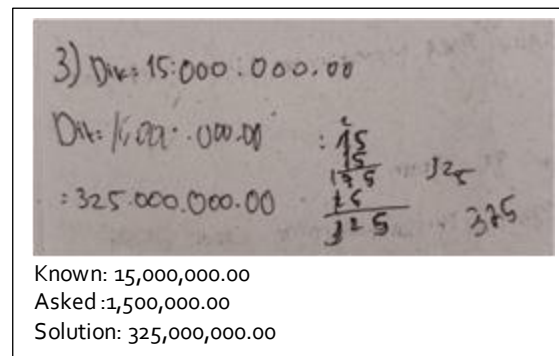 3) Dik: 15.000.000.00
Dit:
: 325.000.000.00
: 15
15
25
325
325
325
Known: 15,000,000.00
Asked :1,500,000.00
Solution: 325,000,000.00